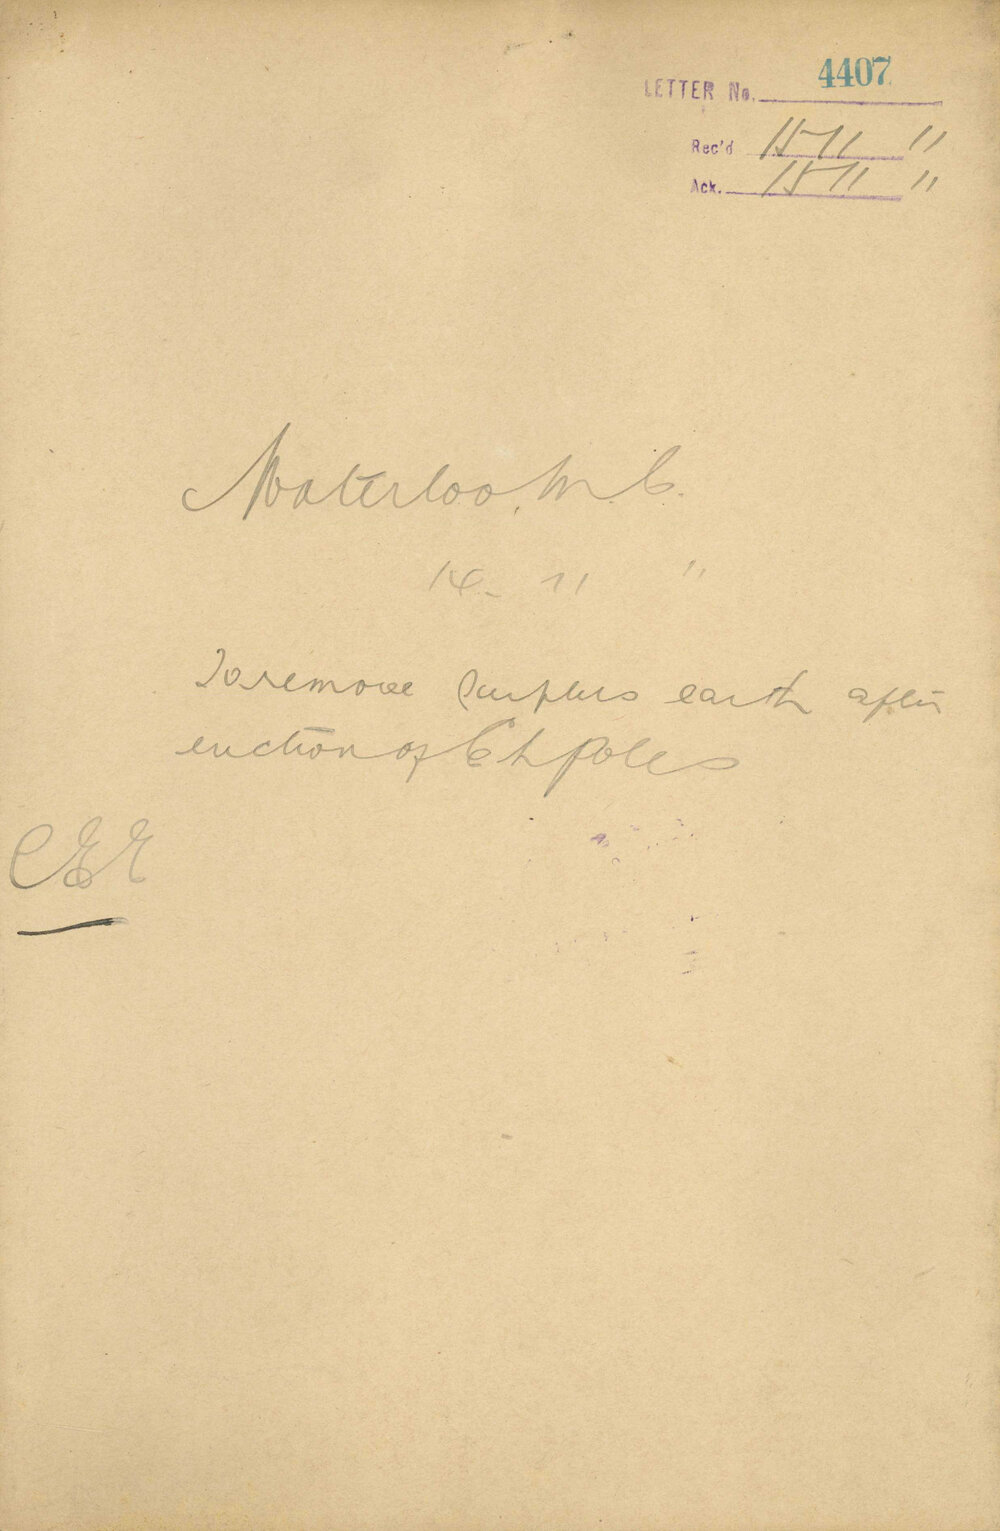 LETTER No. 4407
Rec'd 15-11 11
Ack. 15 11 11
Waterloo, M. C.
14- 11 11
To remove surplus earth after
erection of E L Poles